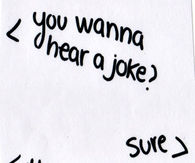 < you wanna
hear a joke?
sure >
<